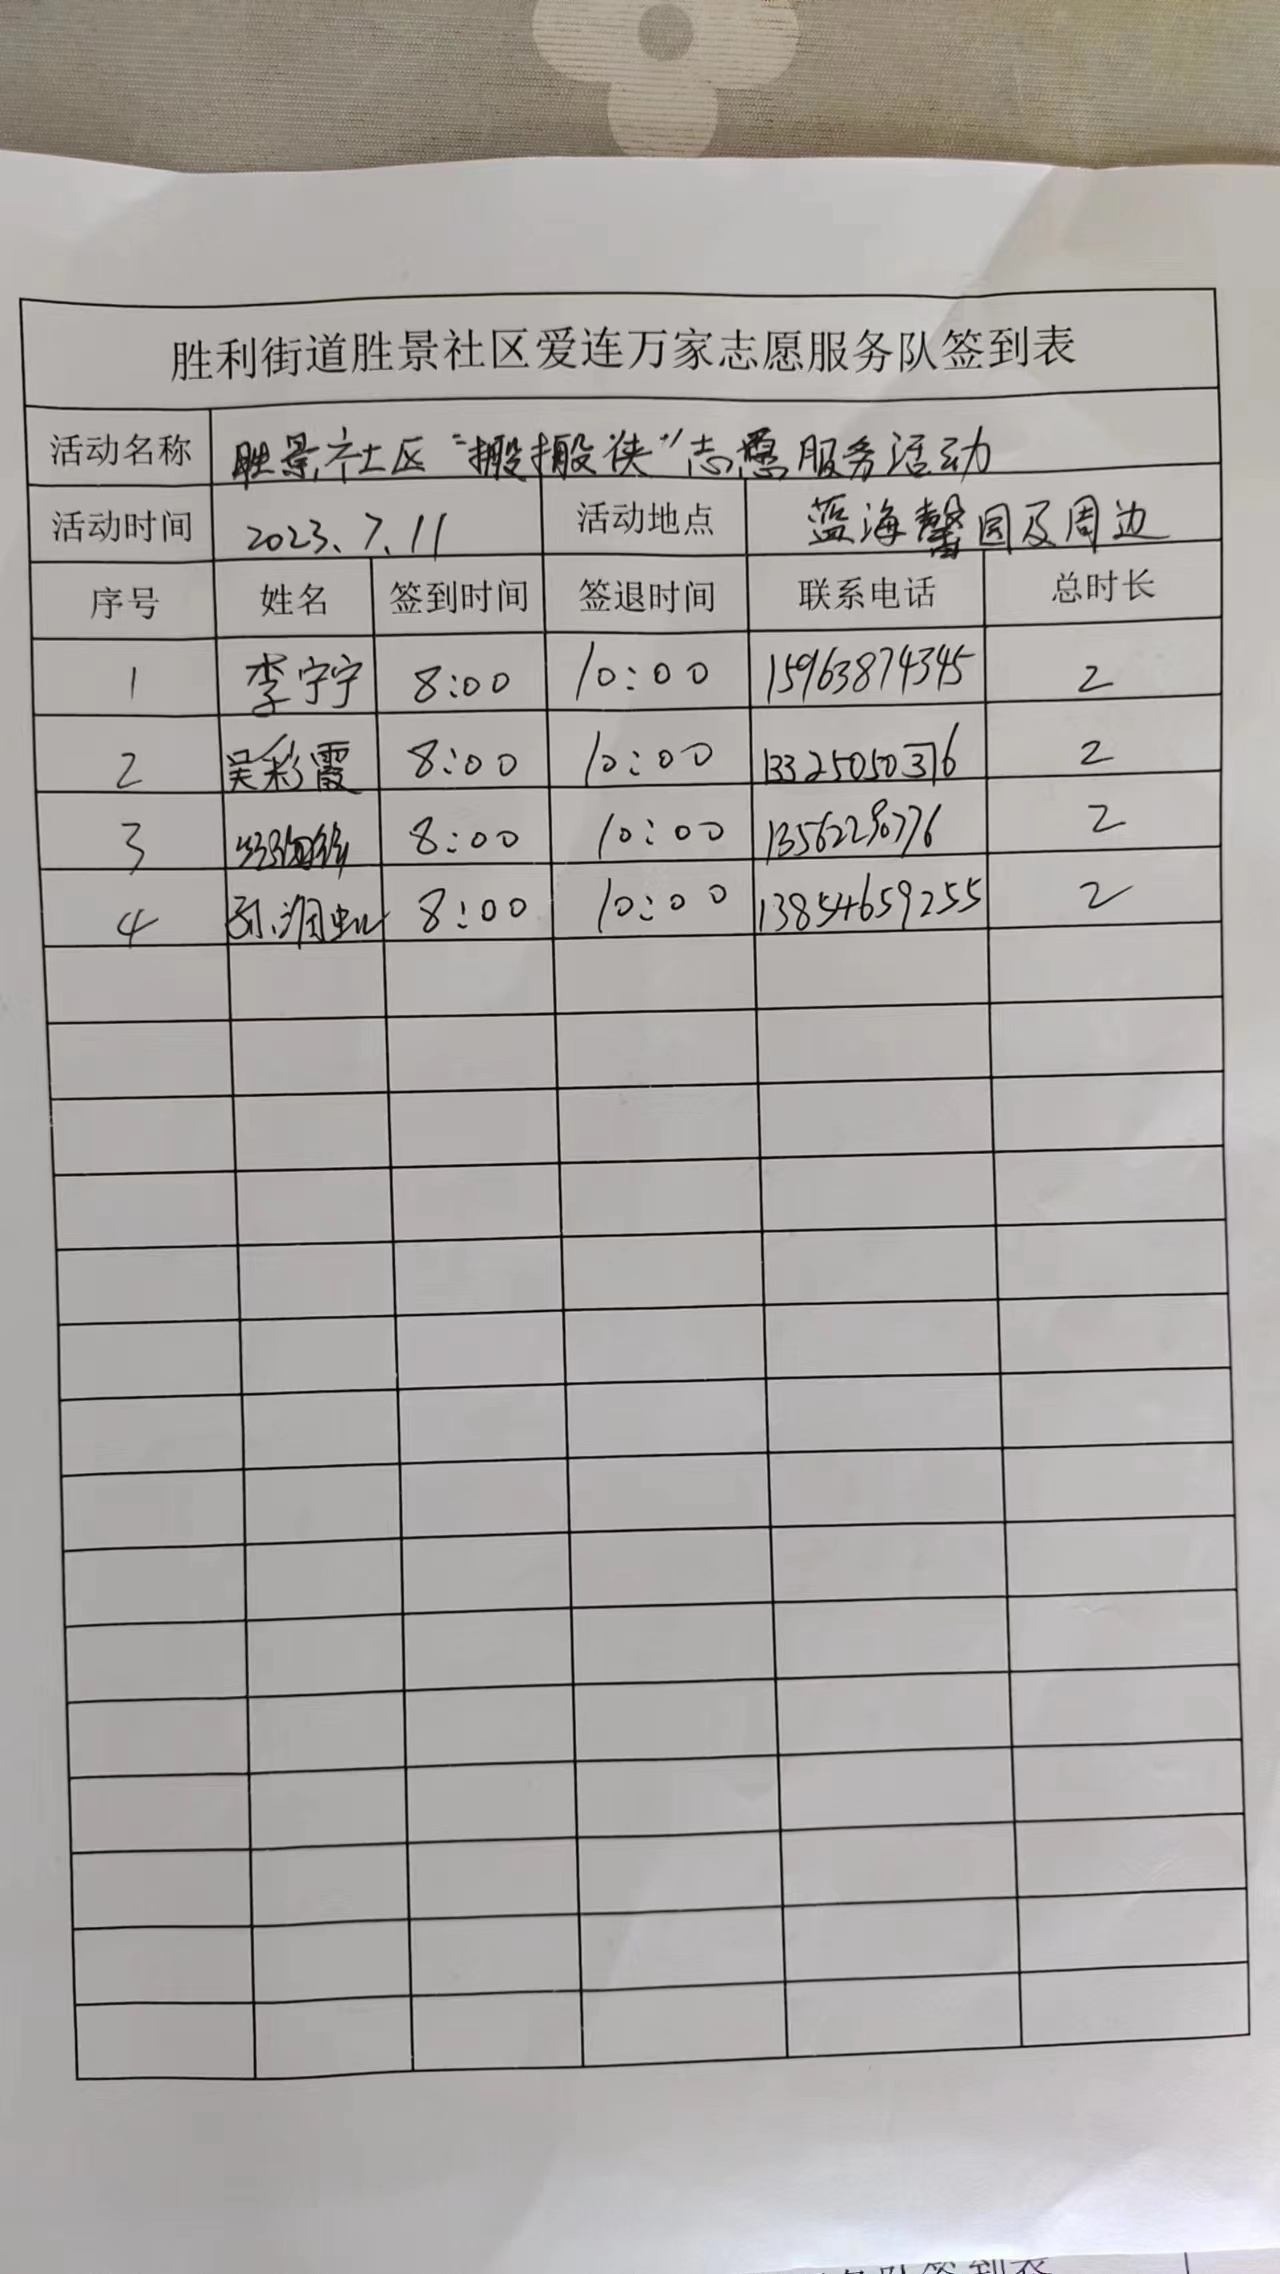 胜利街道胜景社区爱连万家志愿服务队签到表
活动名称 胜景社区“搬搬侠”志愿服务活动
活动时间 2023.7.11 活动地点 蓝海馨园及周边
序号 姓名 签到时间 签退时间 联系电话 总时长
1 李宁宁 8:00 10:00 15963874345 2
2 吴彩霞 8:00 10:00 2
3 8:00 10:00 2
4 8:00 10:00 13854659255 2
签到表